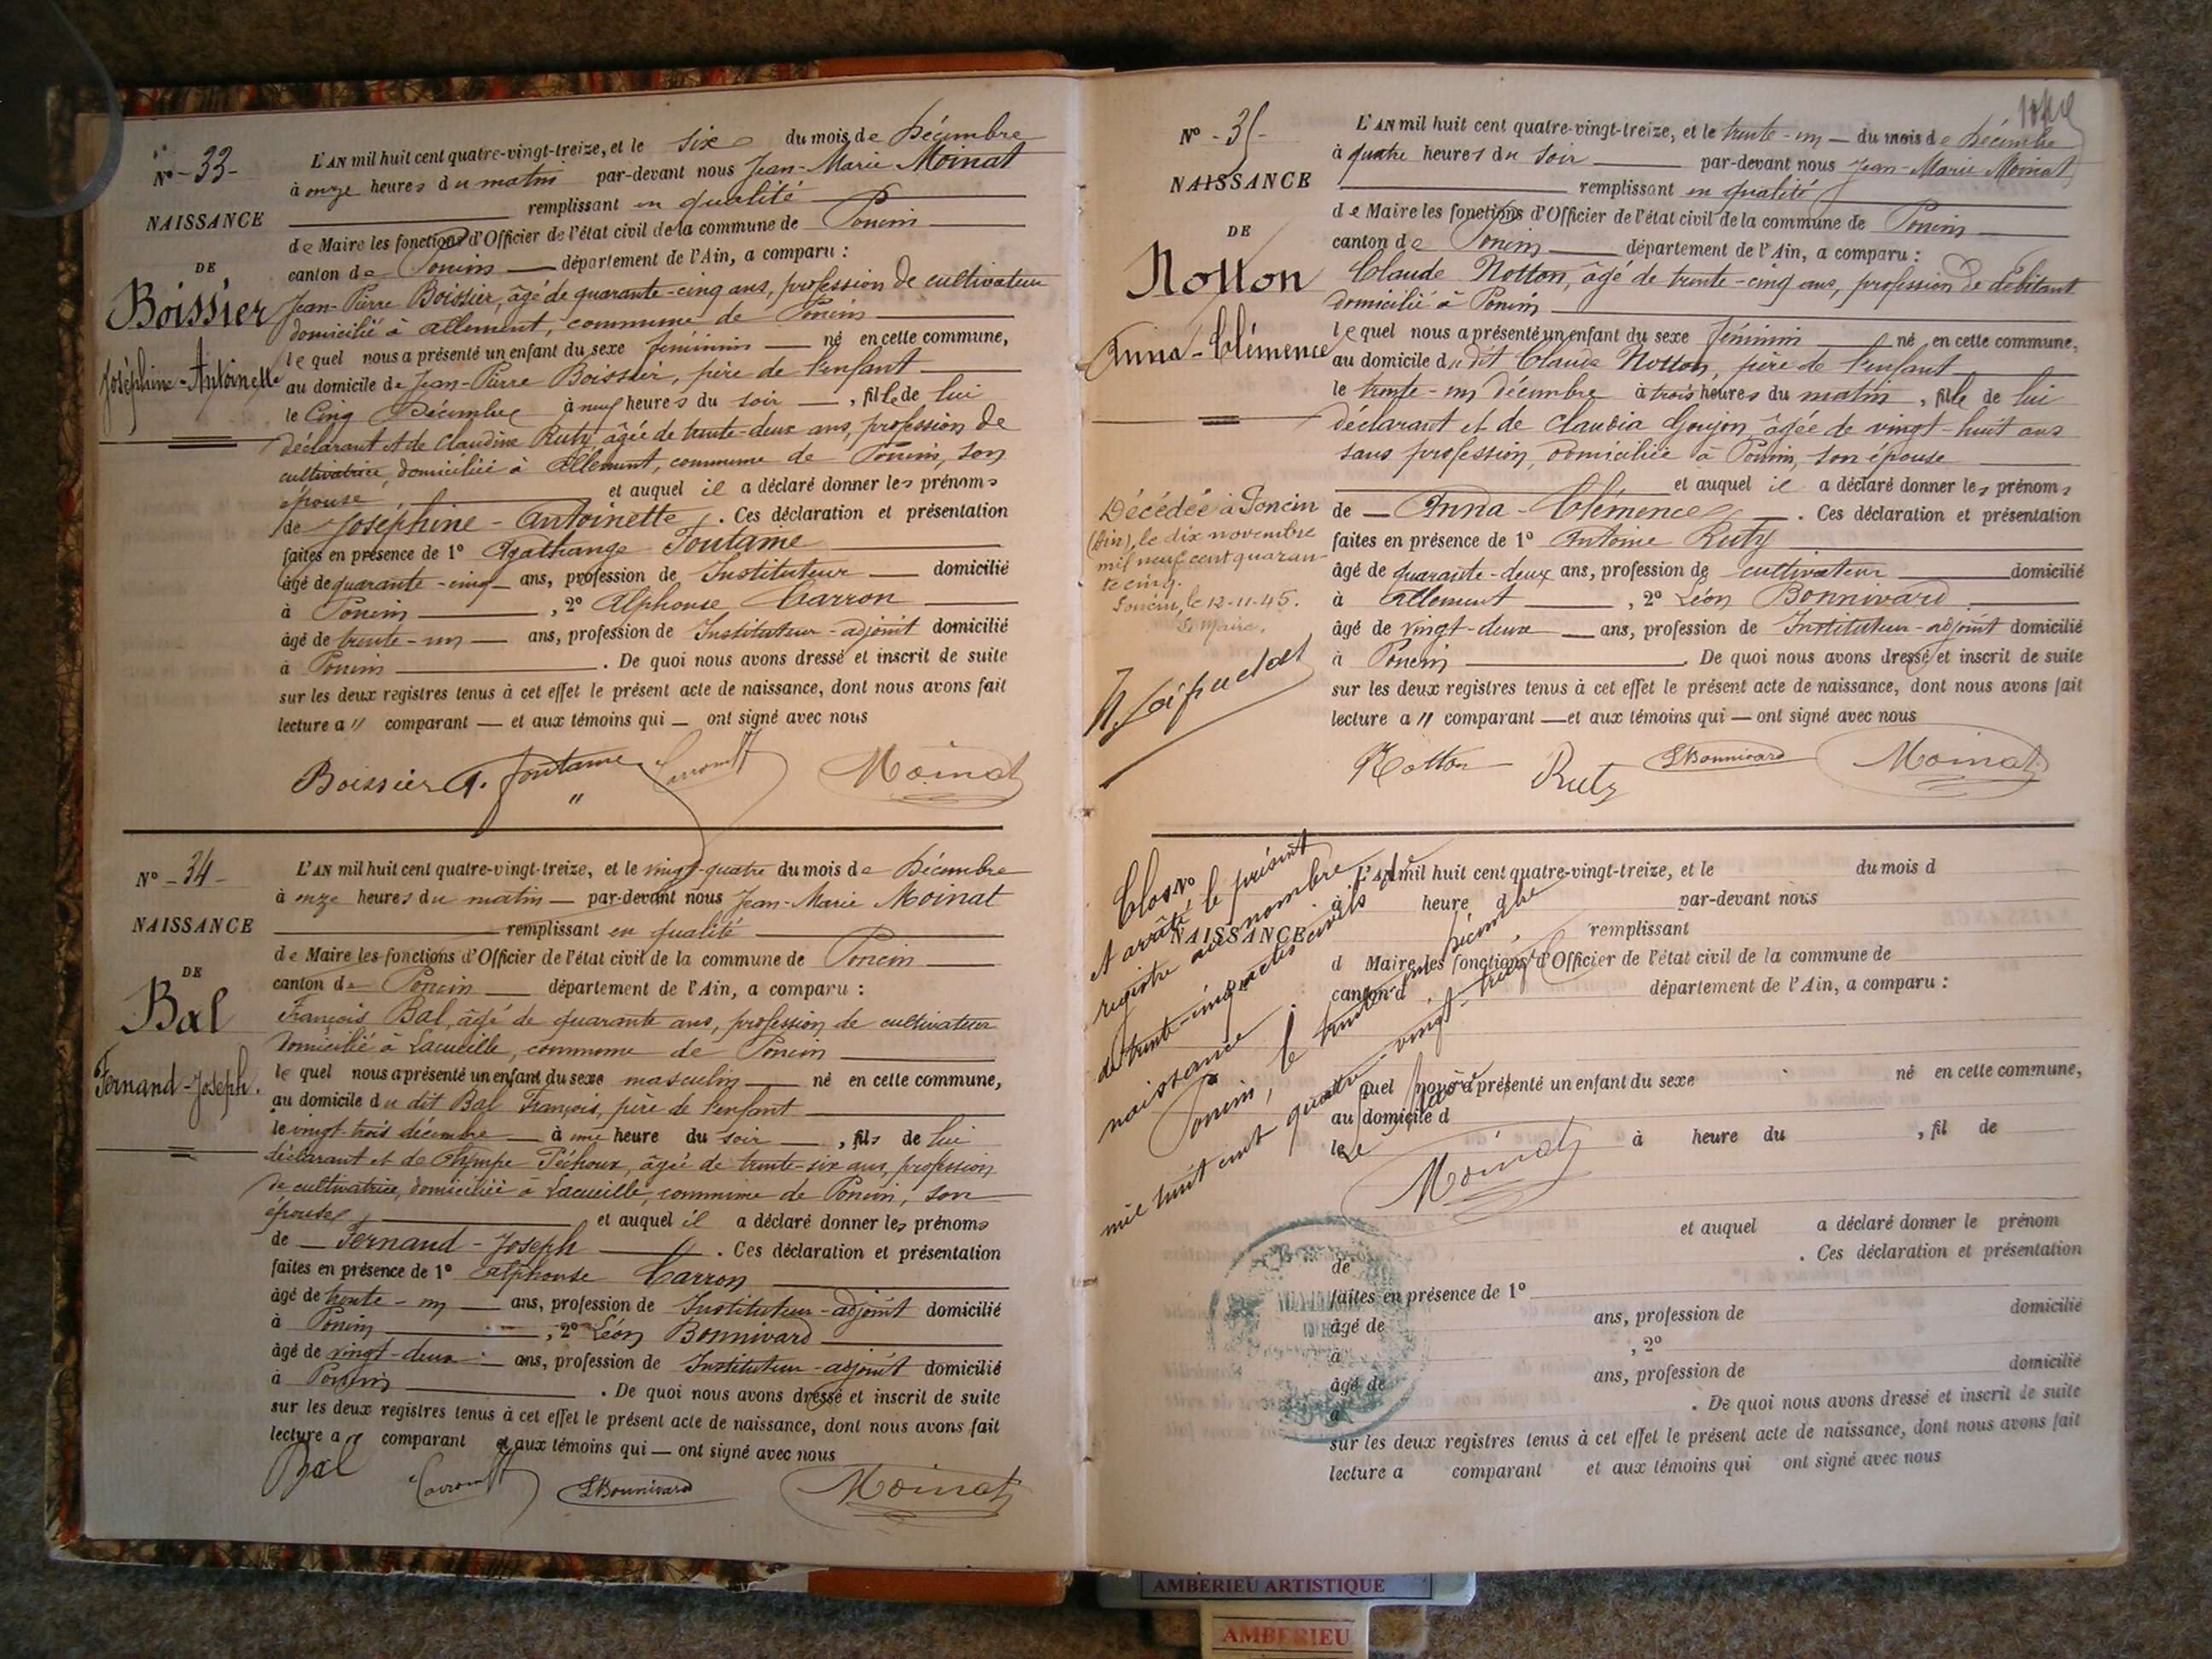 N° - 33 -
NAISSANCE
DE
Boissier
Joséphine-Antoinette
L'AN mil huit cent quatre-vingt-treize, et le six du mois de Décembre
à onze heures du matin par-devant nous Jean-Marie Moinat
remplissant en qualité
de Maire les fonctions d'Officier de l'état civil de la commune de Poncin
canton de Poncin département de l'Ain, a comparu :
Jean-Pierre Boissier, âgé de quarante-cinq ans, profession de cultivateur
domicilié à Allement, commune de Poncin
lequel nous a présenté un enfant du sexe féminin né en cette commune,
au domicile de Jean-Pierre Boissier, père de l'enfant
le Cinq Décembre à neuf heures du soir, fille de lui
déclarant et de Claudine Ruty, âgée de trente-deux ans, profession de
cultivatrice, domiciliée à Allement, commune de Poncin, son
épouse et auquel il a déclaré donner les prénoms
de Joséphine - Antoinette. Ces déclaration et présentation
faites en présence de 1° Agathange Fontame
âgé de quarante-cinq ans, profession de Instituteur domicilié
à Poncin, 2° Alphonse Carron
âgé de trente-un ans, profession de Instituteur-adjoint domicilié
à Poncin. De quoi nous avons dressé et inscrit de suite
sur les deux registres tenus à cet effet le présent acte de naissance, dont nous avons fait
lecture a " comparant — et aux témoins qui — ont signé avec nous
Boissier A. Fontame Carron Moinat
N° - 34 -
NAISSANCE
DE
Bal
Fernand-Joseph.
L'AN mil huit cent quatre-vingt-treize, et le vingt-quatre du mois de Décembre
à onze heures du matin — par-devant nous Jean-Marie Moinat
remplissant en qualité
de Maire les fonctions d'Officier de l'état civil de la commune de Poncin
canton de Poncin département de l'Ain, a comparu :
François Bal, âgé de quarante ans, profession de cultivateur
domicilié à Lacueille, commune de Poncin
lequel nous a présenté un enfant du sexe masculin né en cette commune,
au domicile du dit Bal François, père de l'enfant
le vingt-trois décembre à une heure du soir, fils de lui
déclarant et de Olympe Péchoux, âgée de trente-six ans, profession
de cultivatrice, domiciliée à Lacueille, commune de Poncin, son
épouse et auquel il a déclaré donner les prénoms
de Fernand - Joseph. Ces déclaration et présentation
faites en présence de 1° Alphonse Carron
âgé de trente-un ans, profession de Instituteur-adjoint domicilié
à Poncin, 2° Léon Bonnivard
âgé de vingt-deux ans, profession de Instituteur-adjoint domicilié
à Poncin. De quoi nous avons dressé et inscrit de suite
sur les deux registres tenus à cet effet le présent acte de naissance, dont nous avons fait
lecture a comparant et aux témoins qui — ont signé avec nous
Bal Carron LBonnivard Moinat
N° - 35 -
NAISSANCE
DE
Notton
Anna-Clémence
Décédée à Poncin
(Ain), le dix novembre
mil neuf cent quaran-
te cinq.
Poncin, le 12-11-45.
Le Maire,
L'AN mil huit cent quatre-vingt-treize, et le trente-un — du mois de Décembre
à quatre heures du soir par-devant nous Jean-Marie Moinat,
remplissant en qualité
de Maire les fonctions d'Officier de l'état civil de la commune de Poncin
canton de Poncin département de l'Ain, a comparu :
Claude Notton, âgé de trente-cinq ans, profession de débitant
domicilié à Poncin
lequel nous a présenté un enfant du sexe féminin né en cette commune,
au domicile du dit Claude Notton, père de l'enfant
le trente-un décembre à trois heures du matin, fille de lui
déclarant et de Claudia Goujon âgée de vingt-huit ans
sans profession, domiciliée à Poncin, son épouse
et auquel il a déclaré donner les prénoms
de — Anna - Clémence. Ces déclaration et présentation
faites en présence de 1° Antoine Ruty
âgé de quarante-deux ans, profession de cultivateur domicilié
à Allement, 2° Léon Bonnivard
âgé de vingt-deux ans, profession de Instituteur-adjoint domicilié
à Poncin. De quoi nous avons dressé et inscrit de suite
sur les deux registres tenus à cet effet le présent acte de naissance, dont nous avons fait
lecture a " comparant — et aux témoins qui — ont signé avec nous
Notton Ruty LBonnivard Moinat
Clos
et arrêté le présent
registre au nombre de
de trente-cinq actes civils de
naissance.
Poncin, le trente-un Décembre
mil huit cent quatre-vingt-treize.
Le Maire,
Moinat
N°
NAISSANCE
DE
L'AN mil huit cent quatre-vingt-treize, et le du mois d
à heure d par-devant nous
remplissant
d Maire les fonctions d'Officier de l'état civil de la commune de
canton d département de l'Ain, a comparu :
quel nous a présenté un enfant du sexe né en cette commune,
au domicile d
le à heure du , fil de
et auquel a déclaré donner le prénom
de . Ces déclaration et présentation
faites en présence de 1°
âgé de ans, profession de domicilié
à , 2°
âgé de ans, profession de domicilié
à . De quoi nous avons dressé et inscrit de suite
sur les deux registres tenus à cet effet le présent acte de naissance, dont nous avons fait
lecture a comparant et aux témoins qui ont signé avec nous
AMBERIEU ARTISTIQUE
AMBERIEU